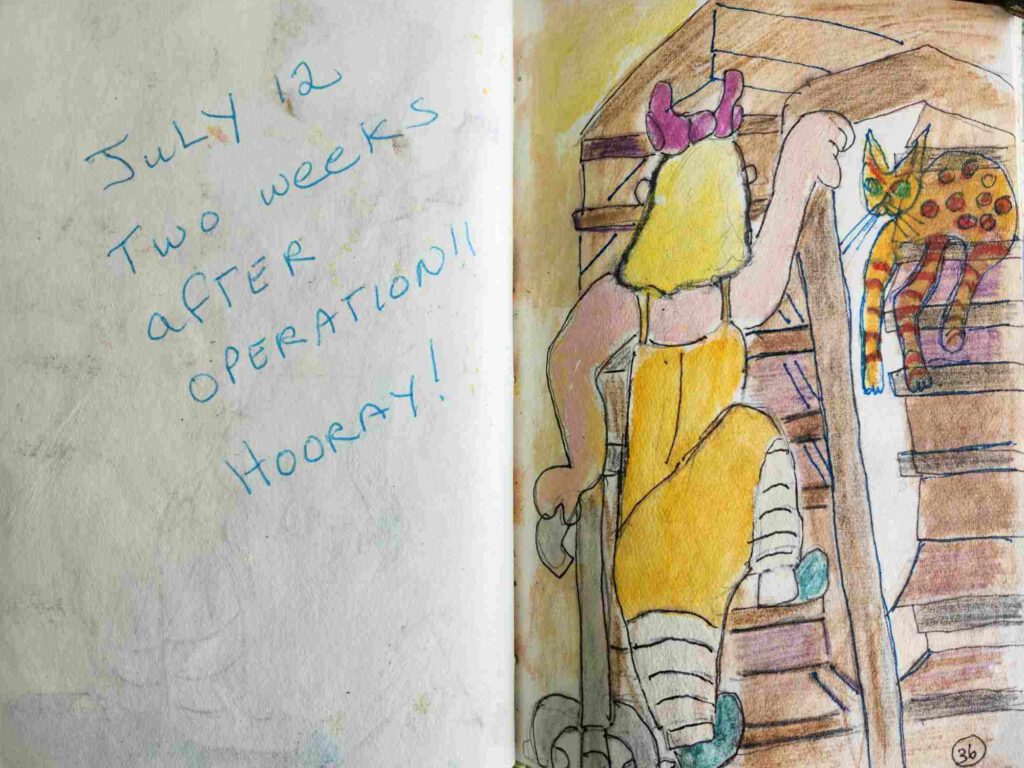 JULY 12
TWO weeKS
aFTER
OPERATION!!
HOORAY!
36